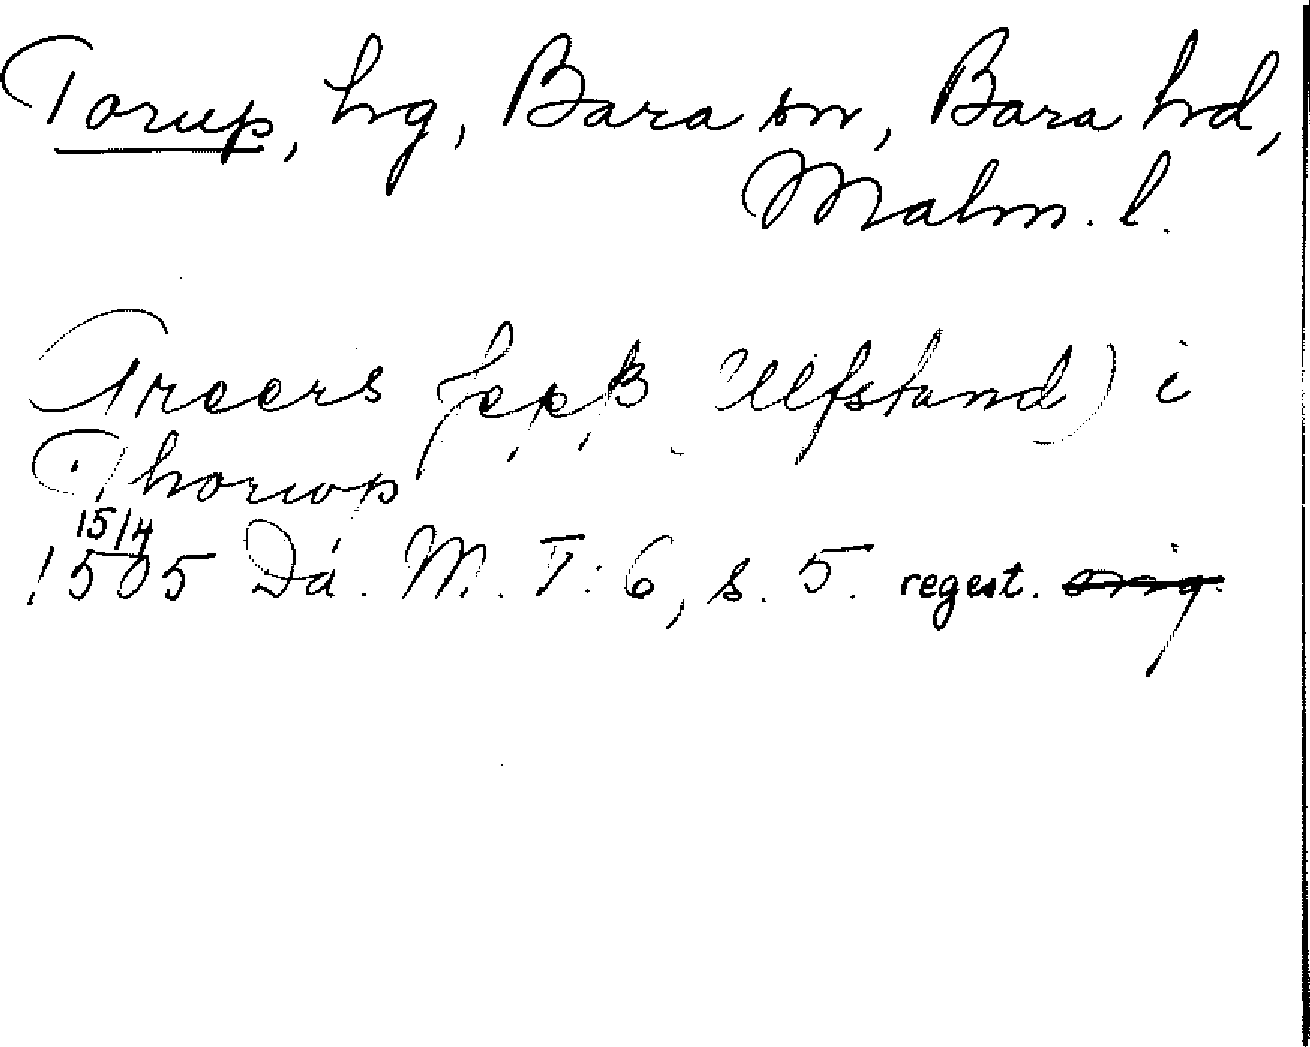 Torup, hg, Bara sn, Bara hd,
Malm. l.
Greers Jepß Ulfstand) i
Thorwp
15/4
1505 Da. M. T: 6, s. 5. regest. orig.